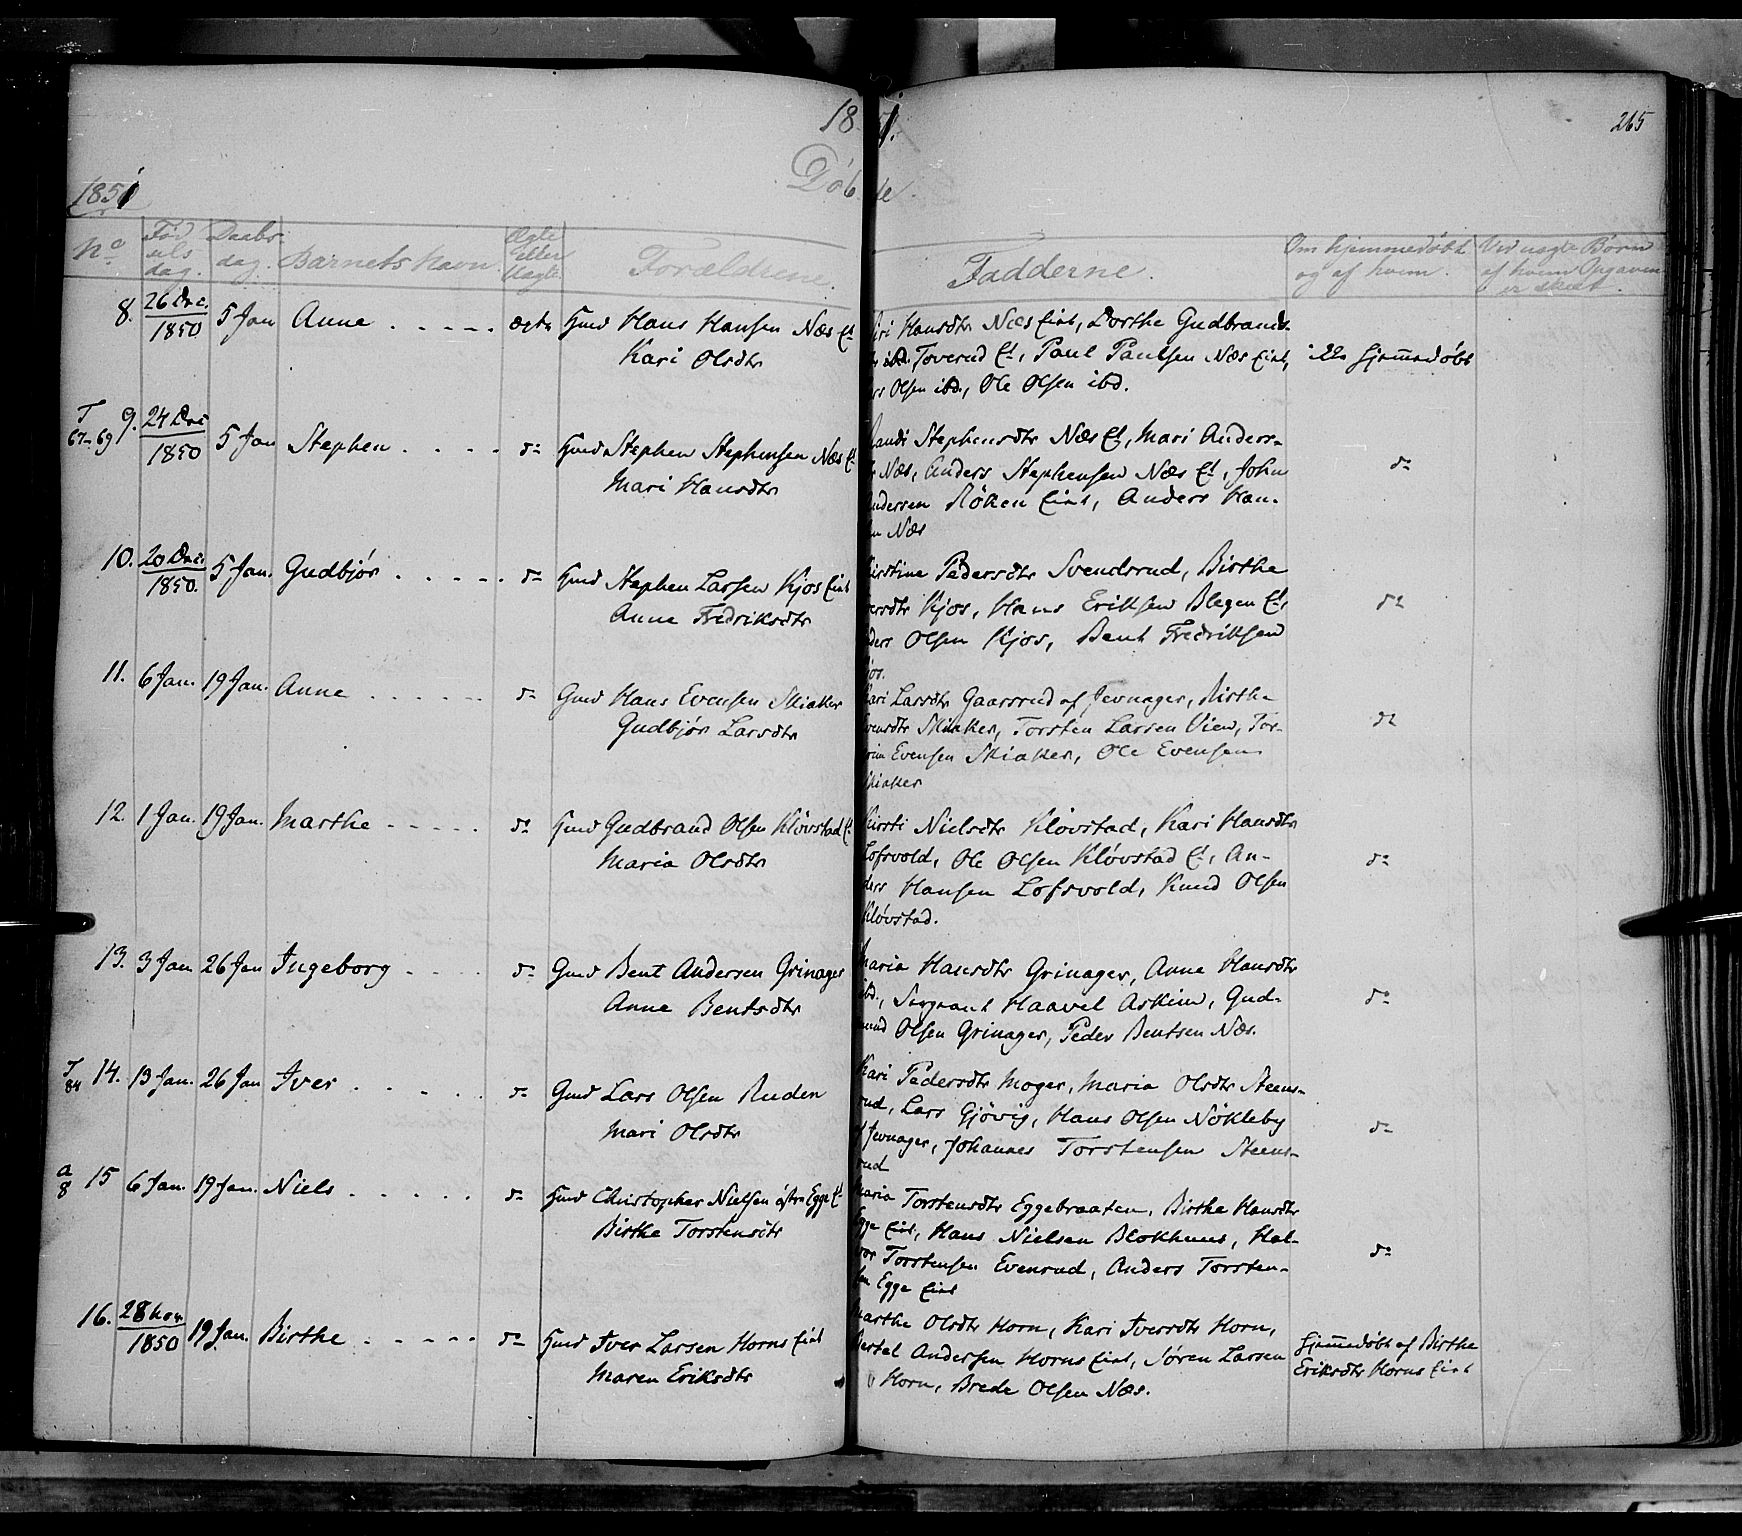 18 51.
265
1851
Döb te
No
Fødselsdag.
Daabsdag.
Barnets Navn
Ægte eller Uægte
Forældrene.
Fadderne.
Om hjemmedøbt og af hvem.
Ved uægte Børn af hvem Opgaven er skeet.
8. 26 Dec. 1850 5 Jan Anne . . . . . ægte Hmd Hans Hansen Næs Et
Kari Olsdtr
Hansdtr Næs Eiet, Dorthe Gudbrands-
ibd. Toverud Et, Paul Paulsen Næs Eiet,
Olsen ibd., Ole Olsen ibd.
ikke hjemmedøbt
T 67-69 9. 24 Dec 1850 5 Jan Stephen . . . . do Hmd Stephen Stephensen Næs Et
Mari Hansdtr
Randi Stephensdtr Næs Et, Mari Anders-
Næs, Anders Stephensen Næs Et, John
Andersen Röken Eiet, Anders Han-
Næs
do
10. 20 Dec. 1850. 5 Jan. Gudbjør . . . . . do Hmd Stephen Larsen Kjos Eiet
Anne Fredriksdtr
Kirstine Pedersdtr Svendsrud, Birthe
Kjos, Hans Eriksen Blegen Et,
Olsen Kjos, Bent Fredriksen
Kjos.
do
11. 6 Jan. 19 Jan. Anne . . . . . . do Gmd Hans Evensen Skiaker
Gudbjør Larsdtr
Kari Larsdtr Gaarsrud af Jevnager, Birthe
Evensdtr Skiaker, Torsten Larsen Vien, Tor-
Evensen Skiaker, Ole Evensen
Skiaker
do
12. 1 Jan. 19 Jan. Marthe . . . . . do Hmd Gudbrand Olsen Kløvstad Et
Maria Olsdtr
Kirsti Nielsdtr Kløvstad, Kari Hansdtr
Lofsvold, Ole Olsen Kløvstad Et, An-
ders Hansen Lofsvold, Knud Olsen
Kløvstad.
do
13. 3 Jan 26 Jan Ingeborg . . . . do Gmd Bent Andersen Grinager
Anne Bentsdtr
Maria Hansdtr Grinager, Anne Hansdtr
ibd., Sergeant Haavel Askim, Gud-
mund Olsen Grinager, Peder Bentsen Næs.
do
T 84 14. 13 Jan. 26 Jan Iver . . . . do Gmd Lars Olsen Ruden
Mari Olsdtr
Kari Pedersdtr Moger, Maria Olsdtr Steens-
rud, Lars Gjövig, Hans Olsen Nökleby
af Jevnager, Johannes Torstensen Steens-
rud
do
a 8 15 6 Jan. 19 Jan. Niels . . . . . do Hmd Christopher Nielsen östre Egge Et
Birthe Torstensdtr
Maria Torstensdtr Eggebraaten, Birthe Hansdtr
Egge Eiet, Hans Nielsen Blokhuus, Hal-
vor Torstensen Evenrud, Anders Torsten-
sen Egge Eiet
do
16. 28 Nov. 1850 19 Jan. Birthe . . . . . do Hmd Iver Larsen Horns Eiet
Maren Eriksdtr
Marthe Olsdtr Horn, Kari Iversdtr Horn,
Bertel Andersen Horns Eiet, Sören Larsen
Horn, Brede Olsen Næs.
Hjemmedøbt af Birthe
Eriksdtr Horns Eiet